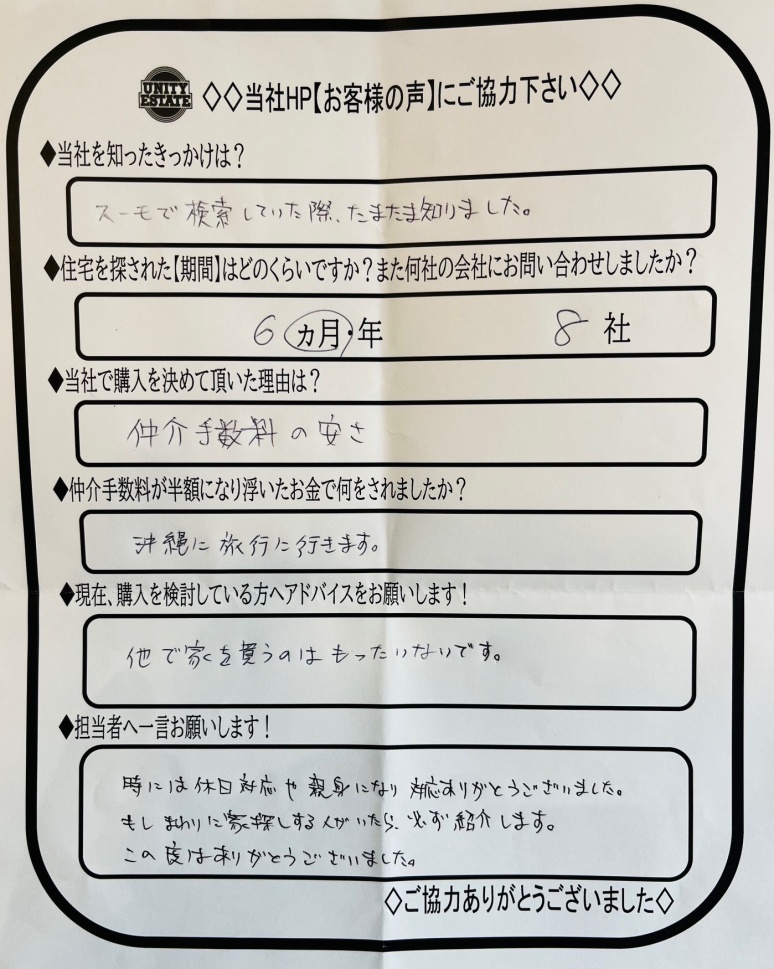 UNITY
ESTATE
◇◇当社HP【お客様の声】にご協力下さい◇◇
◆当社を知ったきっかけは?
スーモで検索していた際、たまたま知りました。
◆住宅を探された【期間】はどのくらいですか?また何社の会社にお問い合わせしましたか?
6 カ月・年 8 社
◆当社で購入を決めて頂いた理由は?
仲介手数料の安さ
◆仲介手数料が半額になり浮いたお金で何をされましたか?
沖縄に旅行に行きます。
◆現在、購入を検討している方へアドバイスをお願いします!
他で家を買うのはもったいないです。
◆担当者へ一言お願いします!
時には休日対応や親身になり対応ありがとうございました。
もしまわりに家探しする人がいたら、必ず紹介します。
この度はありがとうございました。
◇ご協力ありがとうございました◇